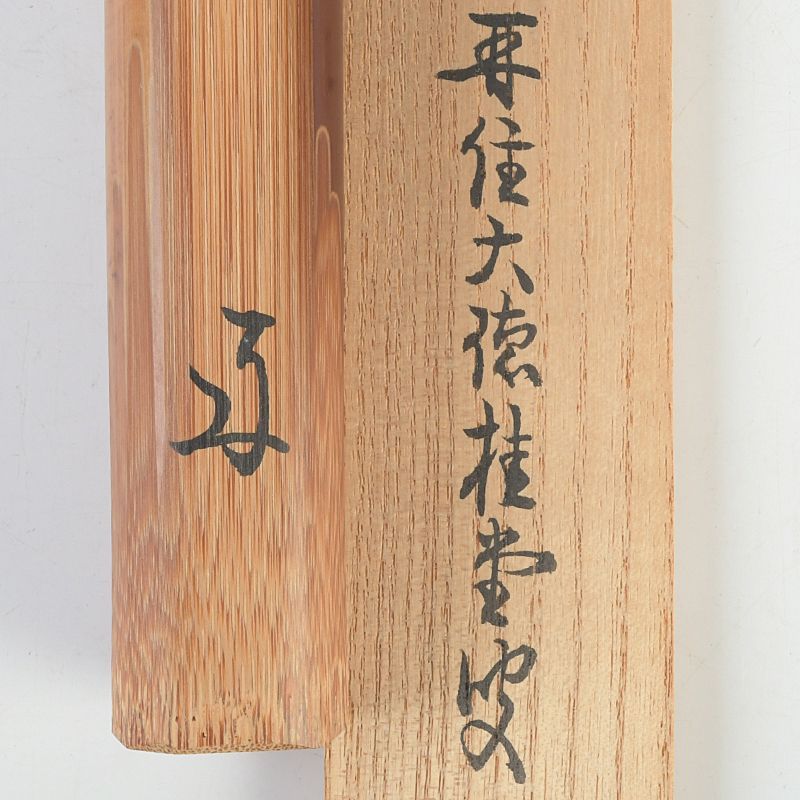 再住大徳桂堂叟